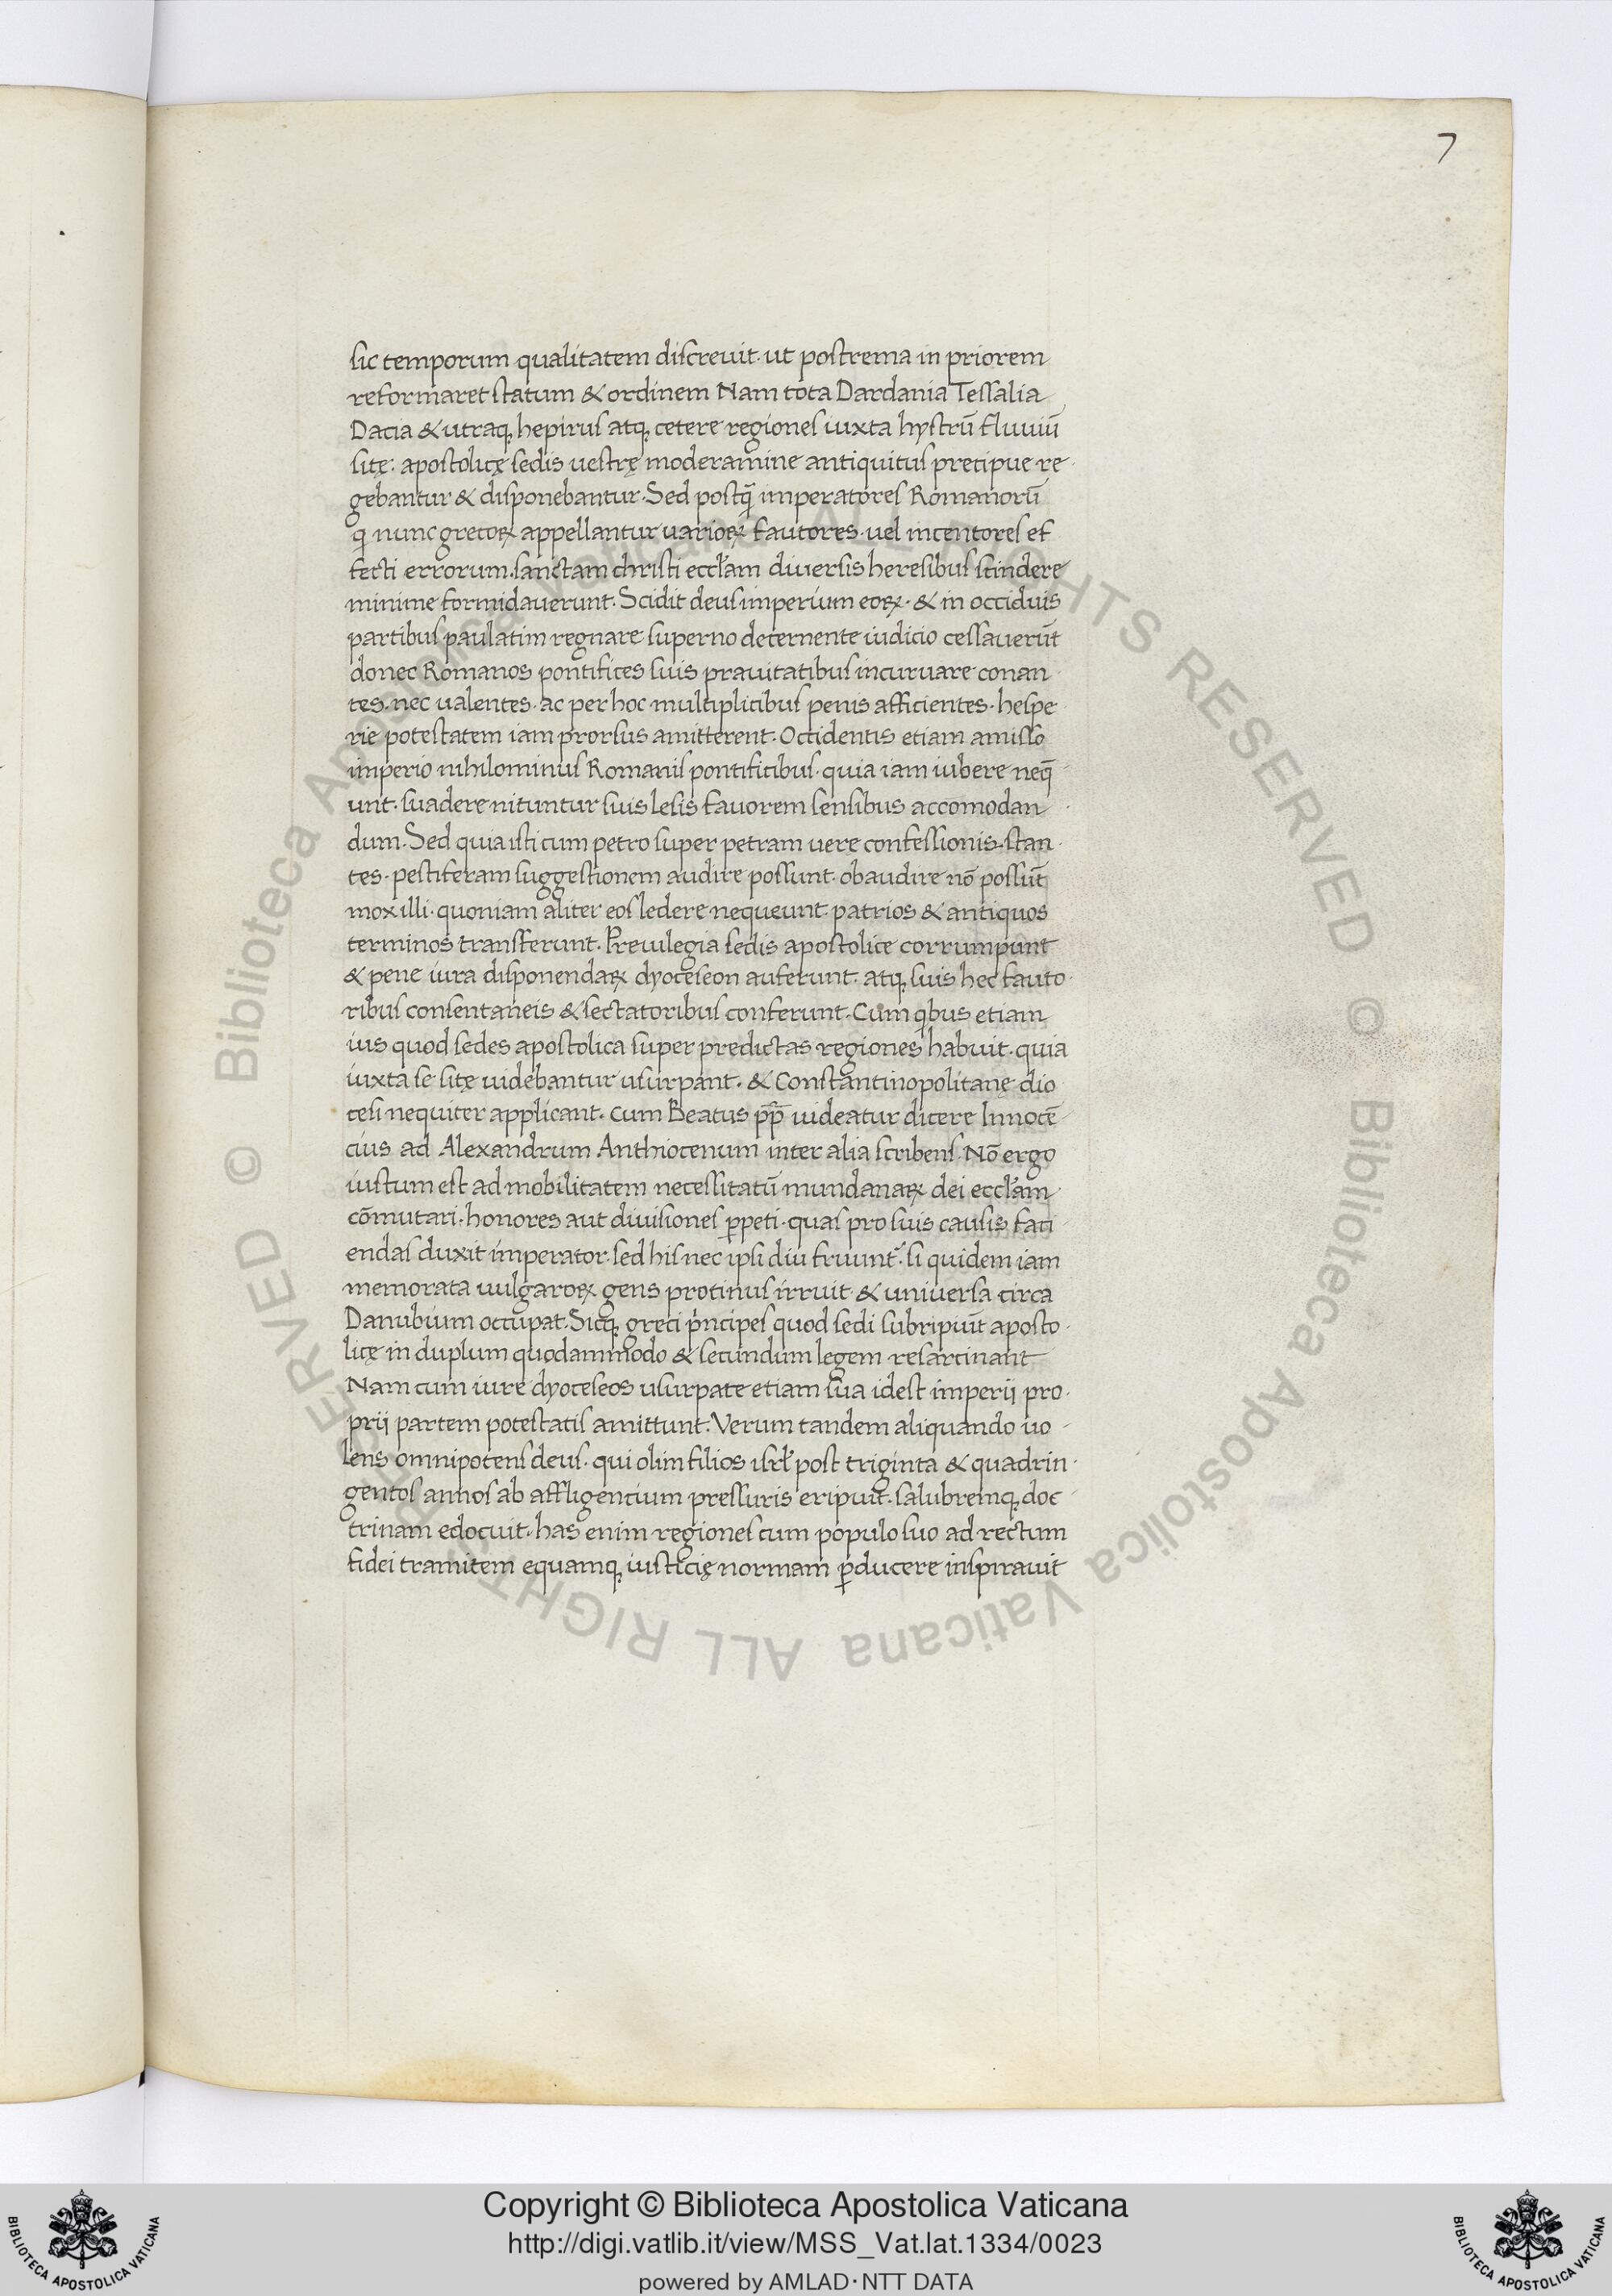 7
sic temporum qualitatem discreuit. ut postrema in priorem
reformaret statum & ordinem Nam tota Dardania Tessalia
Dacia & utraq, hepirus atq, cetere regiones iuxta hystrū fluuiū
sitę: apostolicę sedis uestrę moderamine antiquitus precipue re
gebantur & disponebantur. Sed postq̄ imperatores Romanorū
qi nunc grecoꝝ appellantur uarioꝝ fautores. uel incentores ef
fecti errorum. sanctam christi eccl̄am diuersis heresibus scindere
minime formidauerunt. Scidit deus imperium eoꝝ. & in occiduis
partibus paulatim regnare superno decernente iudicio cessauerūt
donec Romanos pontifices suis prauitatibus incuruare conan
tes. nec ualentes. ac per hoc multiplicibus penis afficientes. hespe
rie potestatem iam prorsus amitterent. Occidentis etiam amisso
imperio nihilominus Romanis pontificibus. quia iam iubere neq̄
unt. suadere nituntur suis lesis fauorem sensibus accomodan
dum. Sed quia isti cum petro super petram uere confessionis stan
tes. pestiferam suggestionem audire possunt. obaudire nō possūt
mox illi. quoniam aliter eos ledere nequeunt. patrios & antiquos
terminos transferunt. Preuilegia sedis apostolice corrumpunt
& pene iura disponendaꝝ dyoceseon auferunt. atq, suis hec fauto
ribus consentaneis & sectatoribus conferunt. Cum qibus etiam
ius quod sedes apostolica super predictas regiones habuit. quia
iuxta se sitę uidebantur usurpant. & Constantinopolitanę dio
cesi nequiter applicant. Cum Beatus pp̄ uideatur dicere Innocē
cius ad Alexandrum Anthiocenum inter alia scribens. Nō ergo
iustum est ad mobilitatem necessitatū mundanaꝝ dei eccl̄am
cōmutari. honores aut diuisiones ꝑpeti. quas pro suis causis faci
endas duxit imperator. sed his nec ipsi diu fruunt᷑. si quidem iam
memorata uulgaroꝝ gens protinus irruit & uniuersa circa
Danubium occupat. Sicq, greci pⁱncipes quod sedi subripuūt aposto
licę in duplum quodammodo & secundum legem resarcinant
Nam cum iure dyoceseos usurpate etiam sua idest imperij pro
prij partem potestatis amittunt. Verum tandem aliquando uo
lens omnipotens deus. qui olim filios isrl̄ post triginta & quadrin
gentos annos ab affligencium pressuris eripuit. salubremq, doc
trinam edocuit. has enim regiones cum populo suo ad rectum
fidei tramitem equamq, iusticię normam ꝑducere inspirauit
© Biblioteca Apostolica Vaticana ALL RIGHTS RESERVED © Biblioteca Apostolica Vaticana ALL RIGHTS RESERVED
BIBLIOTECA APOSTOLICA VATICANA
Copyright © Biblioteca Apostolica Vaticana
http://digi.vatlib.it/view/MSS_Vat.lat.1334/0023
powered by AMLAD·NTT DATA
BIBLIOTECA APOSTOLICA VATICANA